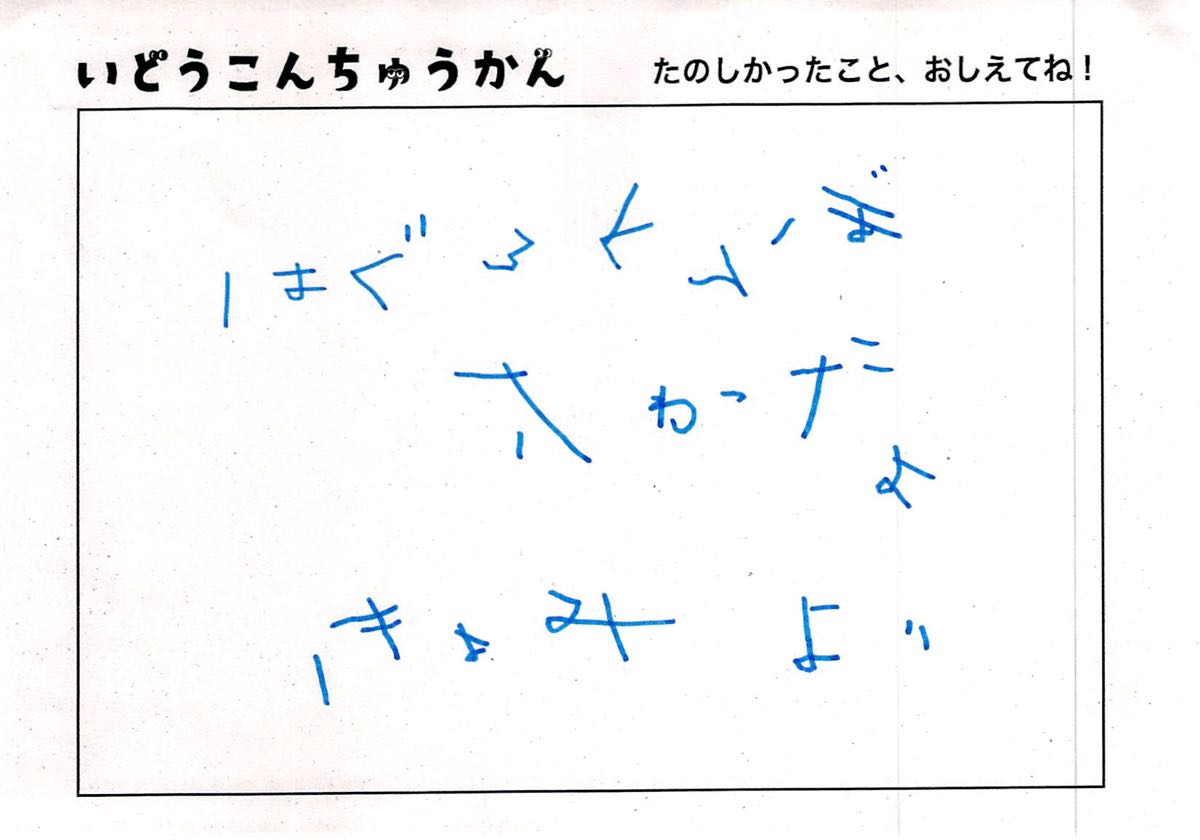 いどうこんちゅうかん たのしかったこと、おしえてね！
はぐろとんぼ
さわったよ
きよみ より